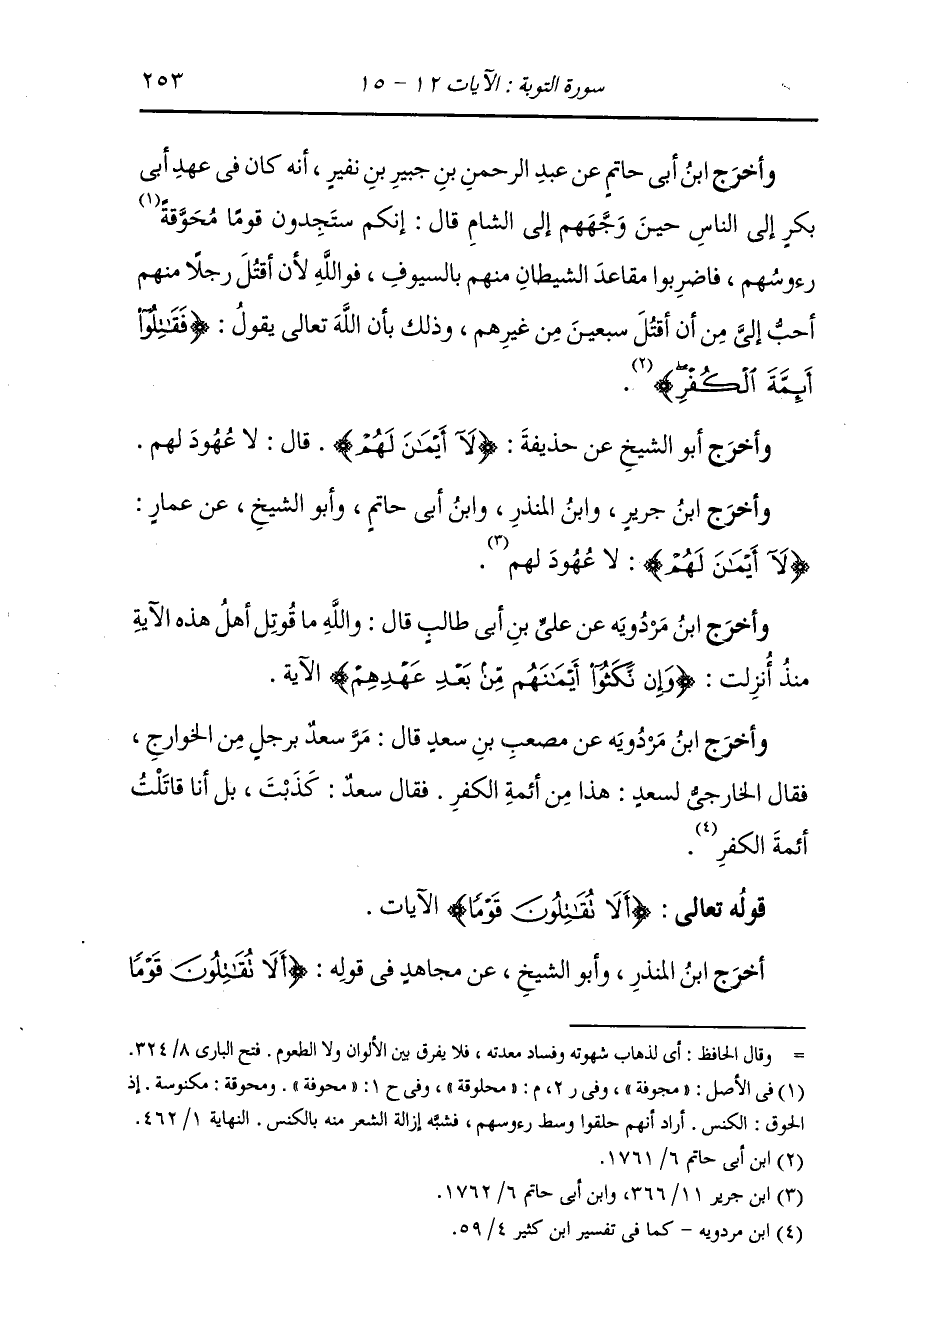 سورة التوبة : الآيات ١٢ - ١٥ ٢٥٣
وأخرَج ابنُ أبى حاتمٍ عن عبدِ الرحمنِ بنِ جبيرِ بنِ نفيرٍ ، أنه كان فى عهدِ أبى
بكرٍ إلى الناسِ حينَ وَجَّهَهم إلى الشامِ قال : إنكم ستَجِدون قومًا مُحَوَّقةً (١)
رءوسُهم ، فاضرِبوا مقاعدَ الشيطانِ منهم بالسيوفِ ، فواللَّهِ لأن أقتُلَ رجلًا منهم
أحبُّ إلىَّ مِن أن أقتُلَ سبعينَ مِن غيرِهم ، وذلك بأن اللَّهَ تعالى يقولُ : ﴿فَقَٰتِلُوٓا۟
أَئِمَّةَ ٱلْكُفْرِۖ﴾ (٢) .
وأخرَج أبو الشيخِ عن حذيفةَ : ﴿لَآ أَيْمَٰنَ لَهُمْ﴾ . قال : لا عُهُودَ لهم .
وأخرَج ابنُ جريرٍ ، وابنُ المنذرِ ، وابنُ أبى حاتمٍ ، وأبو الشيخِ ، عن عمارٍ :
﴿لَآ أَيْمَٰنَ لَهُمْ﴾ : لا عُهُودَ لهم (٣) .
وأخرَج ابنُ مَرْدُويَه عن علىِّ بنِ أبى طالبٍ قال : واللَّهِ ما قُوتِل أهلُ هذه الآيةِ
منذُ أُنزِلت : ﴿وَإِن نَّكَثُوٓا۟ أَيْمَٰنَهُم مِّنۢ بَعْدِ عَهْدِهِمْ﴾ الآية .
وأخرَج ابنُ مَرْدُويَه عن مصعبِ بنِ سعدٍ قال : مَرَّ سعدٌ برجلٍ مِن الخوارجِ ،
فقال الخارجىُّ لسعدٍ : هذا مِن أئمةِ الكفرِ . فقال سعدٌ : كَذَبْتَ ، بل أنا قاتَلْتُ
أئمةَ الكفرِ (٤) .
قولُه تعالى : ﴿أَلَا تُقَٰتِلُونَ قَوْمًا﴾ الآيات .
أخرَج ابنُ المنذرِ ، وأبو الشيخِ ، عن مجاهدٍ فى قولِه : ﴿أَلَا تُقَٰتِلُونَ قَوْمًا
= وقال الحافظ : أى لذهاب شهوته وفساد معدته ، فلا يفرق بين الألوان ولا الطعوم . فتح البارى ٨/ ٣٢٤.
(١) فى الأصل : « مجوفة » ، وفى ر ٢، م : « محلوقة » ، وفى ح ١: « محوفة » . ومحوقة : مكنوسة . إذ
الحوق : الكنس . أراد أنهم حلقوا وسط رءوسهم ، فشبَّه إزالة الشعر منه بالكنس . النهاية ١/ ٤٦٢.
(٢) ابن أبى حاتم ٦/ ١٧٦١.
(٣) ابن جرير ١١/ ٣٦٦، وابن أبى حاتم ٦/ ١٧٦٢.
(٤) ابن مردويه - كما فى تفسير ابن كثير ٤/ ٥٩.